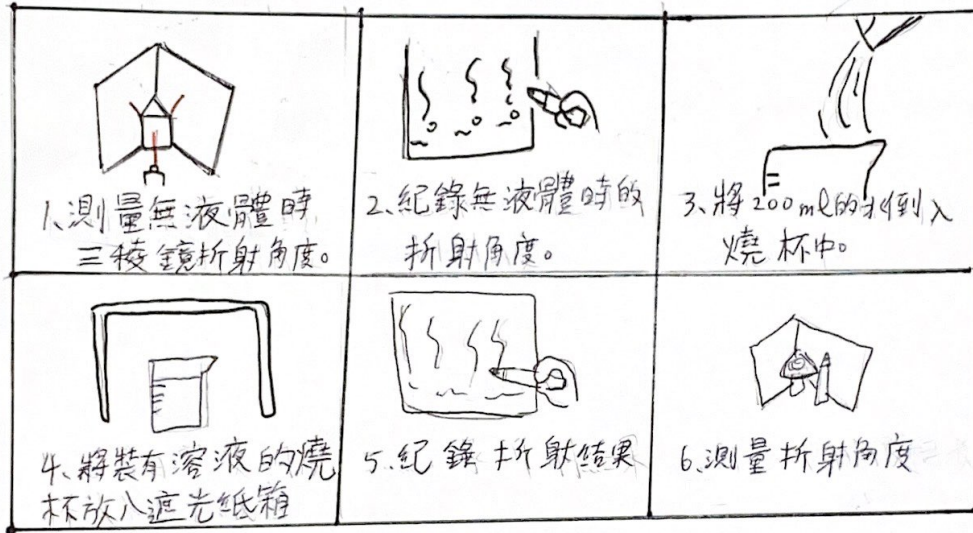 1、測量無液體時
三稜鏡折射角度。
2、紀錄無液體時的
折射角度。
3、將200ml的水倒入
燒杯中。
4、將裝有溶液的燒
杯放入遮光紙箱
5、紀錄折射結果
6、測量折射角度